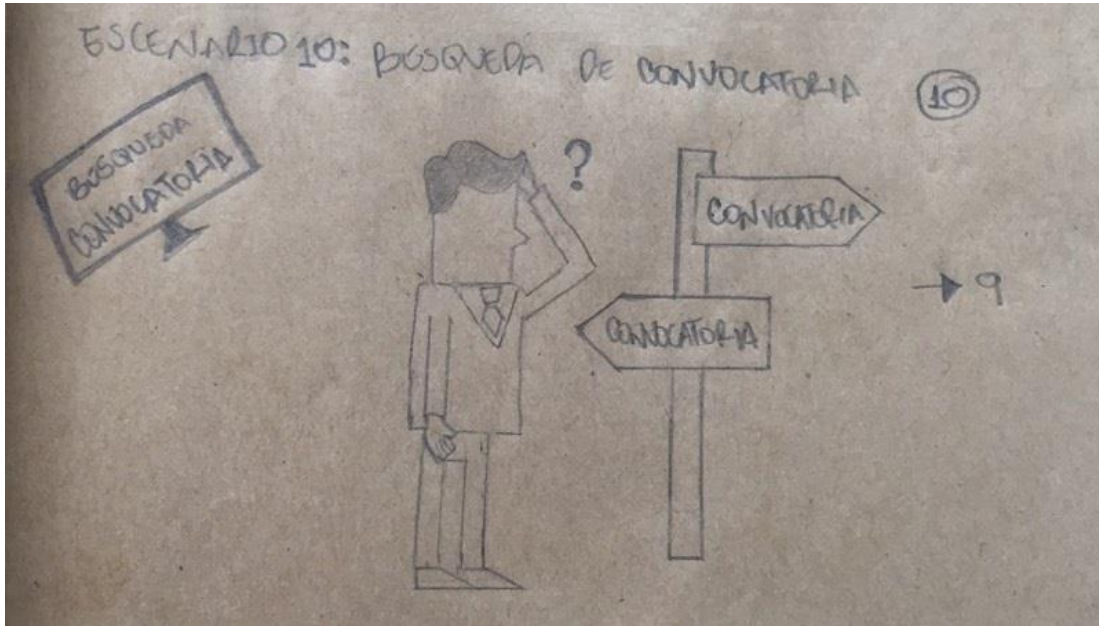 ESCENARIO 10: BÚSQUEDA DE CONVOCATORIA
10
BÚSQUEDA
CONVOCATORIA
?
CONVOCATORIA
CONVOCATORIA
→ 9